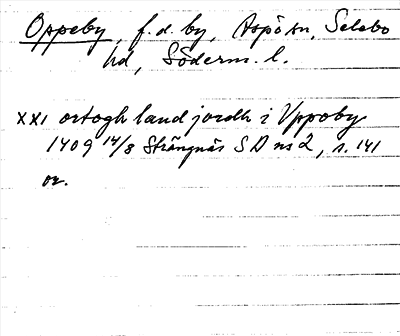 Oppeby, f.d. by, Aspö sn, Selebo
hd, Söderm. l.
XXI ortogh land jordh i Vppoby
1409 14/8 Strängnäs SD ns 2, s. 141
or.